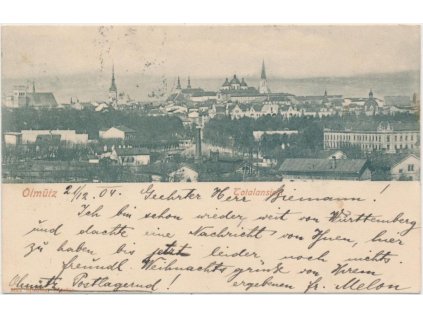 Olmütz Totalansicht
21/12.04. Geehrter Herr Biemann!
Ich bin schon wieder weit von Württemberg
und dachte eine Nachricht von Ihnen, hier
zu haben bis jetzt leider, noch nichts.
freundl Weihnachts grüsse von Ihrem
Olmütz Postlagernd! ergebenen fr. Melon